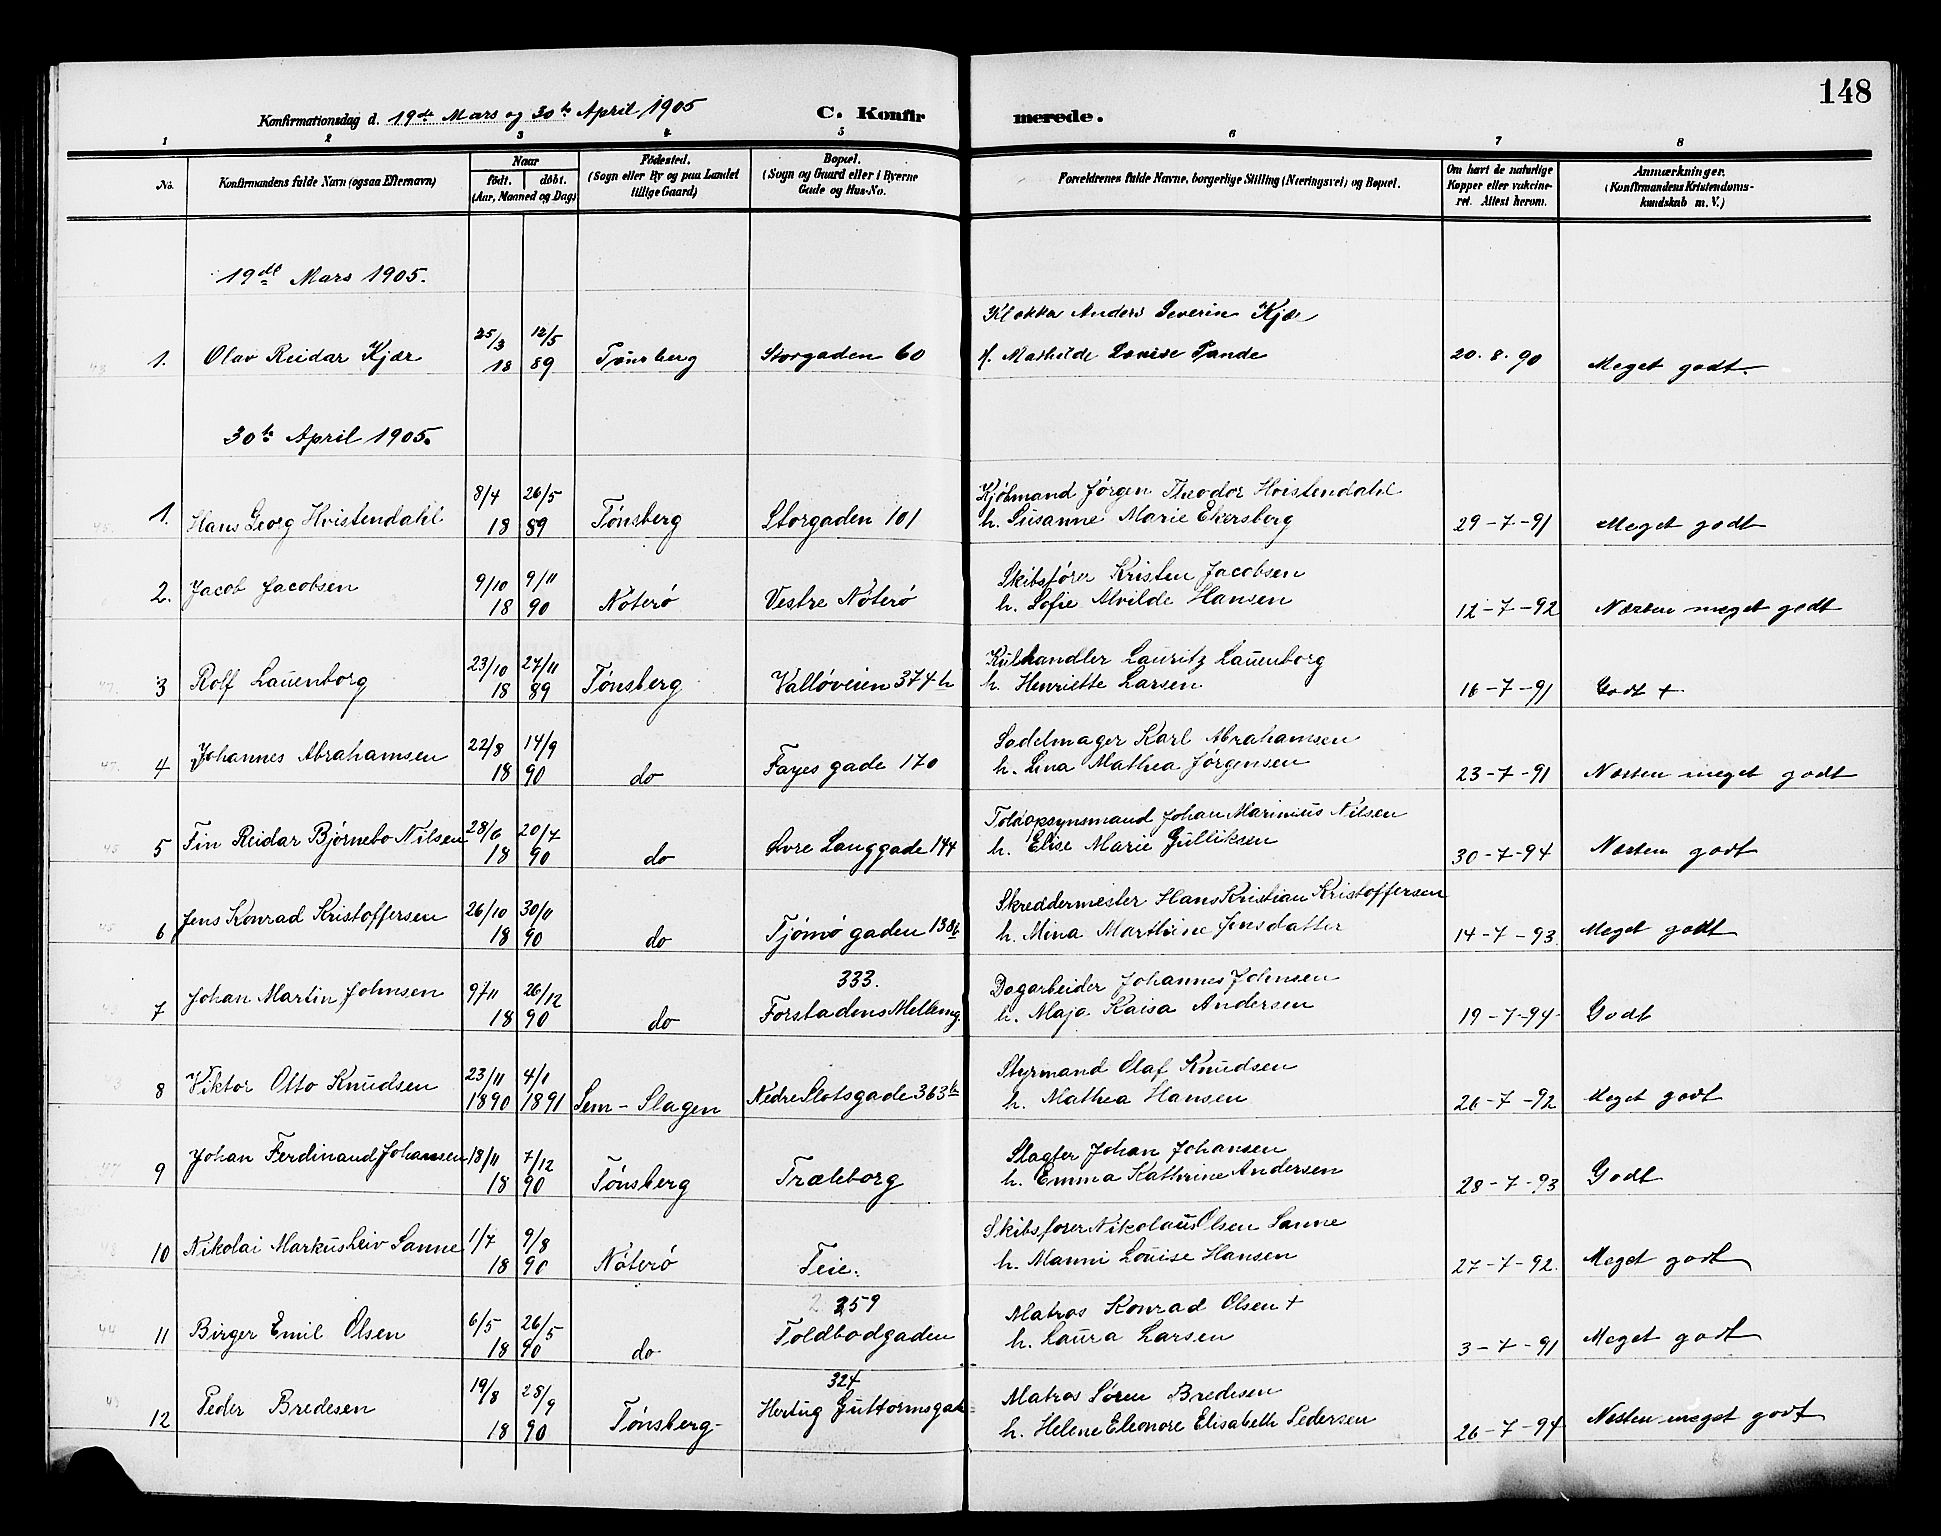 148
Konfirmationsdag d. 19de Mars og 30te April 1905 C. Konfirmerede.
1 2 3 4 5 6 7 8
No. Konfirmandens fulde Navn (ogsaa Efternavn) Naar født. døbt. (Aar, Maaned og Dag) Fødested. (Sogn eller By og paa Landet tillige Gaard) Bopæl. (Sogn og Gaard eller i Byerne Gade og Hus-No. Forældrenes fulde Navne, borgerlige Stilling (Næringsvei) og Bopæl. Om havt de naturlige Kopper eller vakcineret. Attest herom. Anmærkninger. (Konfirmandens Kristendomskundskab m. V.)
19de Mars 1905.
Klokker Anders Severin Kjær
1. Olav Reidar Kjær 25/3 12/5 18 89 Tønsberg Storgaden 60 f. Mathilde Lovise Tande 20.8.90 Meget godt.
30te April 1905.
Kjøbmand Jørgen Theodor Hvistendahl
1. Hans Georg Hvistendahl 8/4 26/5 18 89 Tønsberg Storgaden 101 h. Susanne Marie Ekersberg 29-7-91 Meget godt
Skibsfører Kristen Jacobsen
2. Jacob Jacobsen 9/10 9/11 18 90 Nøterø Vestre Nøterø h. Sofie Alvilde Hansen 12-7-92 Næsten meget godt
Kulhandler Lauritz Lauenborg
3 Rolf Lauenborg 23/10 27/11 18 89 Tønsberg Valløveien 374 b h. Henriette Larsen 16-7-91 Godt +
Sadelmager Karl Abrahamsen
4 Johannes Abrahamsen 22/8 14/9 18 90 do Fayes gade 170 h. Lina Mathea Jørgensen 23-7-91 Næsten meget godt
Toldopsynsmand Johan Marinius Nilsen
5 Fin Reidar Bjørnebo Nilsen 28/6 20/7 18 90 do Øvre Langgade 144 h. Elise Marie Gulliksen 30-7-94 Næsten godt
Skreddermester Hans Kristian Kristoffersen
6 Jens Konrad Kristoffersen 26/10 30/11 18 90 do Tjømøgaden 138b h. Mina Marthine Jensdatter 14-7-93 Meget godt
333. Dagarbeider Johannes Johnsen
7 Johan Martin Johnsen 9/11 26/12 18 90 do Forstadens Mellemg. h. Maja Kaisa Andersen 19-7-94 Godt
Styrmand Olaf Knudsen
8 Viktor Otto Knudsen 23/11 4/1 1890 1891 Sem-Slagen Nedre Slotsgade 363b h. Mathea Hansen 26-7-92 Meget godt
Slagter Johan Johansen
9 Johan Ferdinand Johansen 18/11 7/12 18 90 Tønsberg Træleborg h. Emma Kathrine Andersen 28-7-93 Godt
Skibsfører Nikolaus Olsen Sanne
10 Nikolai Markus Leiv Sanne 1/7 9/8 18 90 Nøterø Teie. h. Manni Louise Hansen 27-7-92. Meget godt
359 Matros Konrad Olsen +
11 Birger Emil Olsen 6/5 26/5 18 90 do Toldbodgaden h. Laura Larsen 3-7-91 Meget godt
324 Matros Søren Bredesen
12 Peder Bredesen 19/8 28/9 18 90 Tønsberg Hertug Guttormsgade h. Helene Eleonore Elisabeth Pedersen 26-7-94 Næsten meget godt